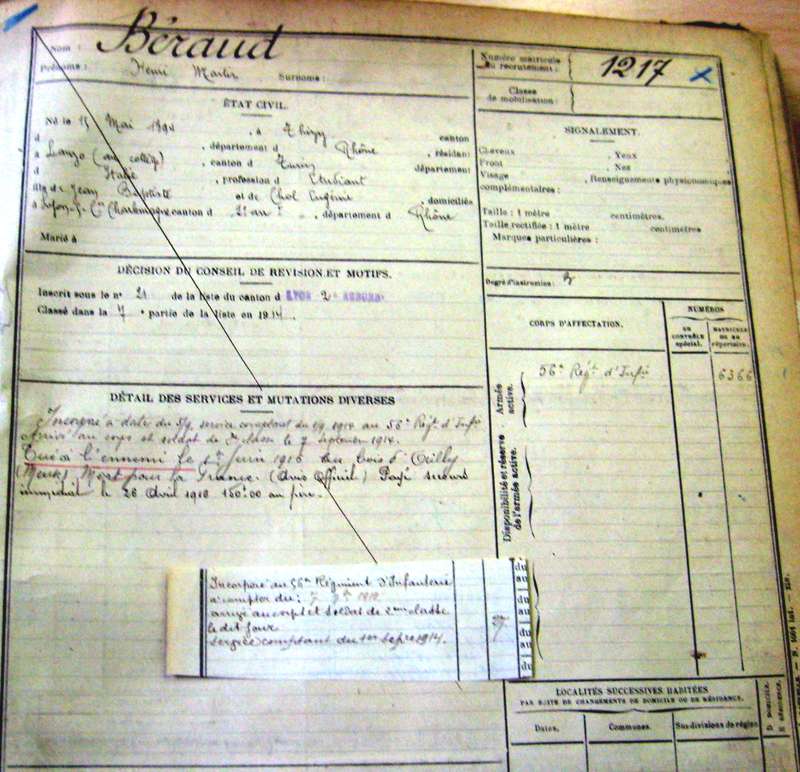 Nom : Béraud
Prénoms : Henri Martin Surnoms :
Numéro matricule
du recrutement : 1217
Classe
de mobilisation :
ÉTAT CIVIL.
Né le 15 Mai 1894, à Thizy canton
d , département d Rhône, résidant
à Lanzo (au collège), canton d Turin département
d Italie, profession d Etudiant
fils de Jean Baptiste et de Chol Eugénie domiciliés
à Lyon, Charlemagne canton d 2e , département d Rhône
Marié à
SIGNALEMENT.
Cheveux , Yeux
Front , Nez
Visage , Renseignements physionomiques
complémentaires :
Taille : 1 mètre centimètres.
Taille rectifiée : 1 mètre centimètres
Marques particulières :
Degré d'instruction : 3
DÉCISION DU CONSEIL DE REVISION ET MOTIFS.
Inscrit sous le n° 21 de la liste du canton d LYON 2e ARROND
Classé dans la 7e partie de la liste en 1914.
DÉTAIL DES SERVICES ET MUTATIONS DIVERSES
Incorporé à dater du 5/9, service comptant du 1/9 1914 au 56e Régt d'Infie
Arrivé au corps et soldat de 2e classe le 7 Septembre 1914.
Tué à l'ennemi le 1er Juin 1915 au Bois d'Ailly
(Meuse). Mort pour la France. (Avis Officiel) Payé secours
immédiat le 26 Avril 1916 150f00 au père.
CORPS D'AFFECTATION.
NUMÉROS
AU
CONTRÔLE
spécial.
MATRICULE
OU AU
répertoire.
Armée
active.
56e Régt d'Infie 6366
Disponibilité et réserve
de l'armée active.
Incorporé au 56e Régiment d'Infanterie
à compter du : 7
arrivé au corps et soldat de 2ème classe
le dit jour
service comptant du 1er Septbre 1914.
du
au
du
au
du
au
du
LOCALITÉS SUCCESSIVES HABITÉES
PAR SUITE DE CHANGEMENTS DE DOMICILE OU DE RÉSIDENCE.
Dates.
Communes.
Subdivisions de région
D. DOMICILE.
R. RÉSIDENCE.